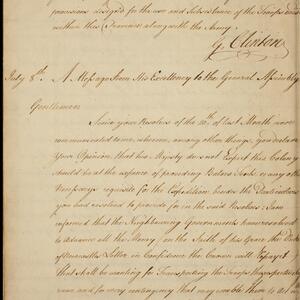 provisions designed for the use and Subsistance of the Troops
within this Province along with the Army.
G. Clinton
July 8th. A Message from His Excellency to the General Assembly
Gentlemen
Since your Resolves of the 10th of last Month were
communicated to me, wherein, among other things, you declare
Your Opinion that his Majesty do not Expect this Colony
should be at the expence of providing Battoes Stock or any other
Necessarys requisite for the Expedition besides the Particulars
you had resolved to provide for in the said Resolves: I am
informed that the Neighbouring Governments have resolved
to Advance all the Money on the Faith of his Grace the Duke
of Newcastles Letter in Confidence the Crown will Repay it
that shall be wanting for Transporting the Troops
and for every contingency that may